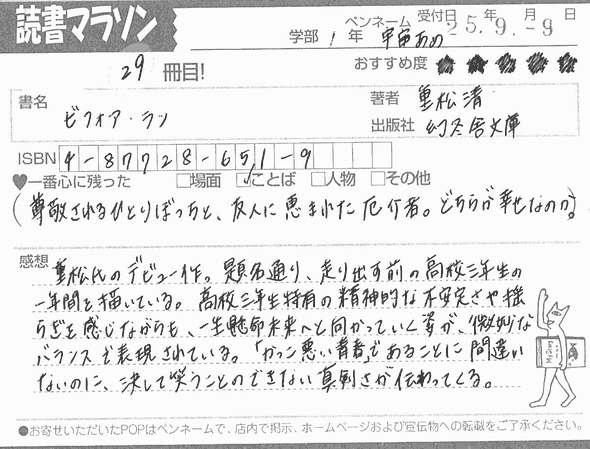 読書マラソン
学部 1 年 ペンネーム 宇宙あめ 受付日 25年 9.月-9日
29 冊目!
おすすめ度
書名 ビフォア・ラン
著者 重松清
出版社 幻冬舎文庫
ISBN 4-87728-651-9
♥一番心に残った □場面 ☑ことば □人物 □その他
(尊敬されるひとりぼっちと、友人に恵まれた厄介者。どちらが幸せなのか。)
感想 重松氏のデビュー作。題名通り、走り出す前の高校三年生の
一年間を描いている。高校三年生特有の精神的な不安定さや揺
らぎを感じながらも、一生懸命未来へと向かっていく姿が、微妙な
バランスで表現されている。「かっこ悪い青春」であることに間違い
ないのに、決して笑うことのできない真剣さが伝わってくる。
●お寄せいただいたPOPはペンネームで、店内で掲示、ホームページおよび宣伝物への転載をご了承ください。